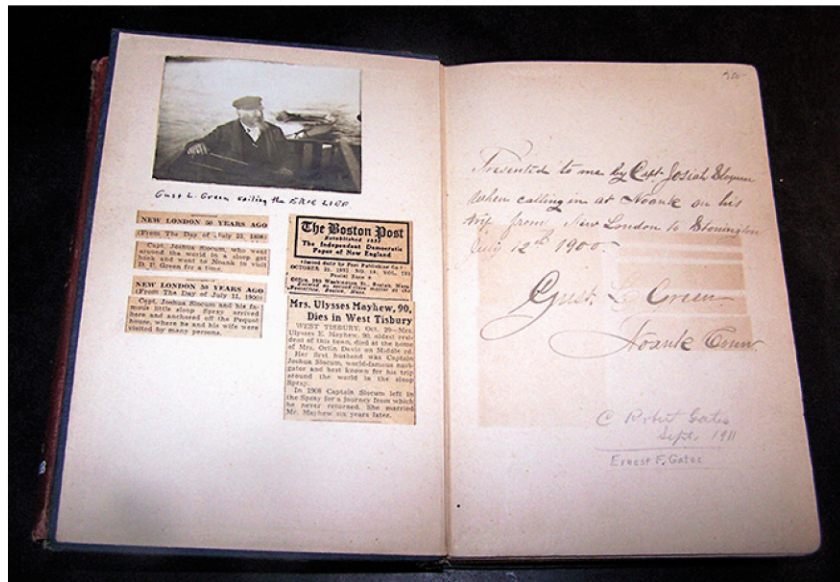 Gust L. Green sailing the
NEW LONDON 50 YEARS AGO
(From The Day of July 23, 1900)
Capt. Joshua Slocum, who went
around the world in a sloop got
back and went to Noank to visit
D. P. Green for a time.
NEW LONDON 50 YEARS AGO
(From The Day of July 12, 1900)
Capt. Joshua Slocum and his fa-
mous little sloop Spray arrived
here and anchored off the Pequot
house, where he and his wife were
visited by many persons.
The Boston Post
Established 1831
The Independent Democratic
Paper of New England
Issued daily by Post Publishing Co.
OCTOBER 1952
Mrs. Ulysses Mayhew, 90,
Dies in West Tisbury
WEST TISBURY, Oct. 29—Mrs.
Ulysses E. Mayhew, 90, oldest resi-
dent of this town, died at the home
of Mrs. Orlin Davis on Middle rd.
Her first husband was Captain
Joshua Slocum, world-famous navi-
gator and best known for his trip
around the world in the sloop
Spray.
In 1908 Captain Slocum left in
the Spray for a journey from which
he never returned. She married
Mr. Mayhew six years later.
Presented to me by Capt. Josiah Slocum
when calling in at Noank on his
trip from New London to Stonington
July 12th 1900.
Gust. L. Green
Noank Conn
C Robert Gates
Sept. 1911
Ernest F. Gates